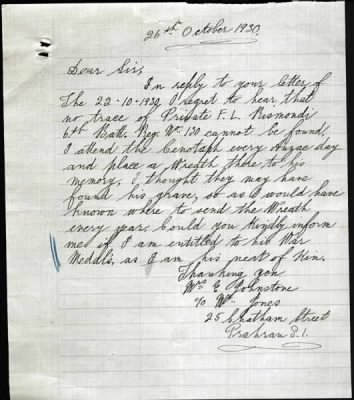 26th October 1930.
Dear Sir,
In reply to your letter of
The 22-10-1930, I regret to hear that
no trace of Private F. L. Bismondi
6th Batt. Reg. No. 120 cannot be found.
I attend the Cenotaph every Anzac day
and place a Wreath there to his
memory. I thought they may have
found his grave, so as I would have
known where to send the Wreath
every year. Could you kindly inform
me if I am entitled to his War
Medals, as I am his next of kin.
Thanking you
Mrs E Johnstone
c/o Wm Jones
25 Chatham Street
Prahran S.1.